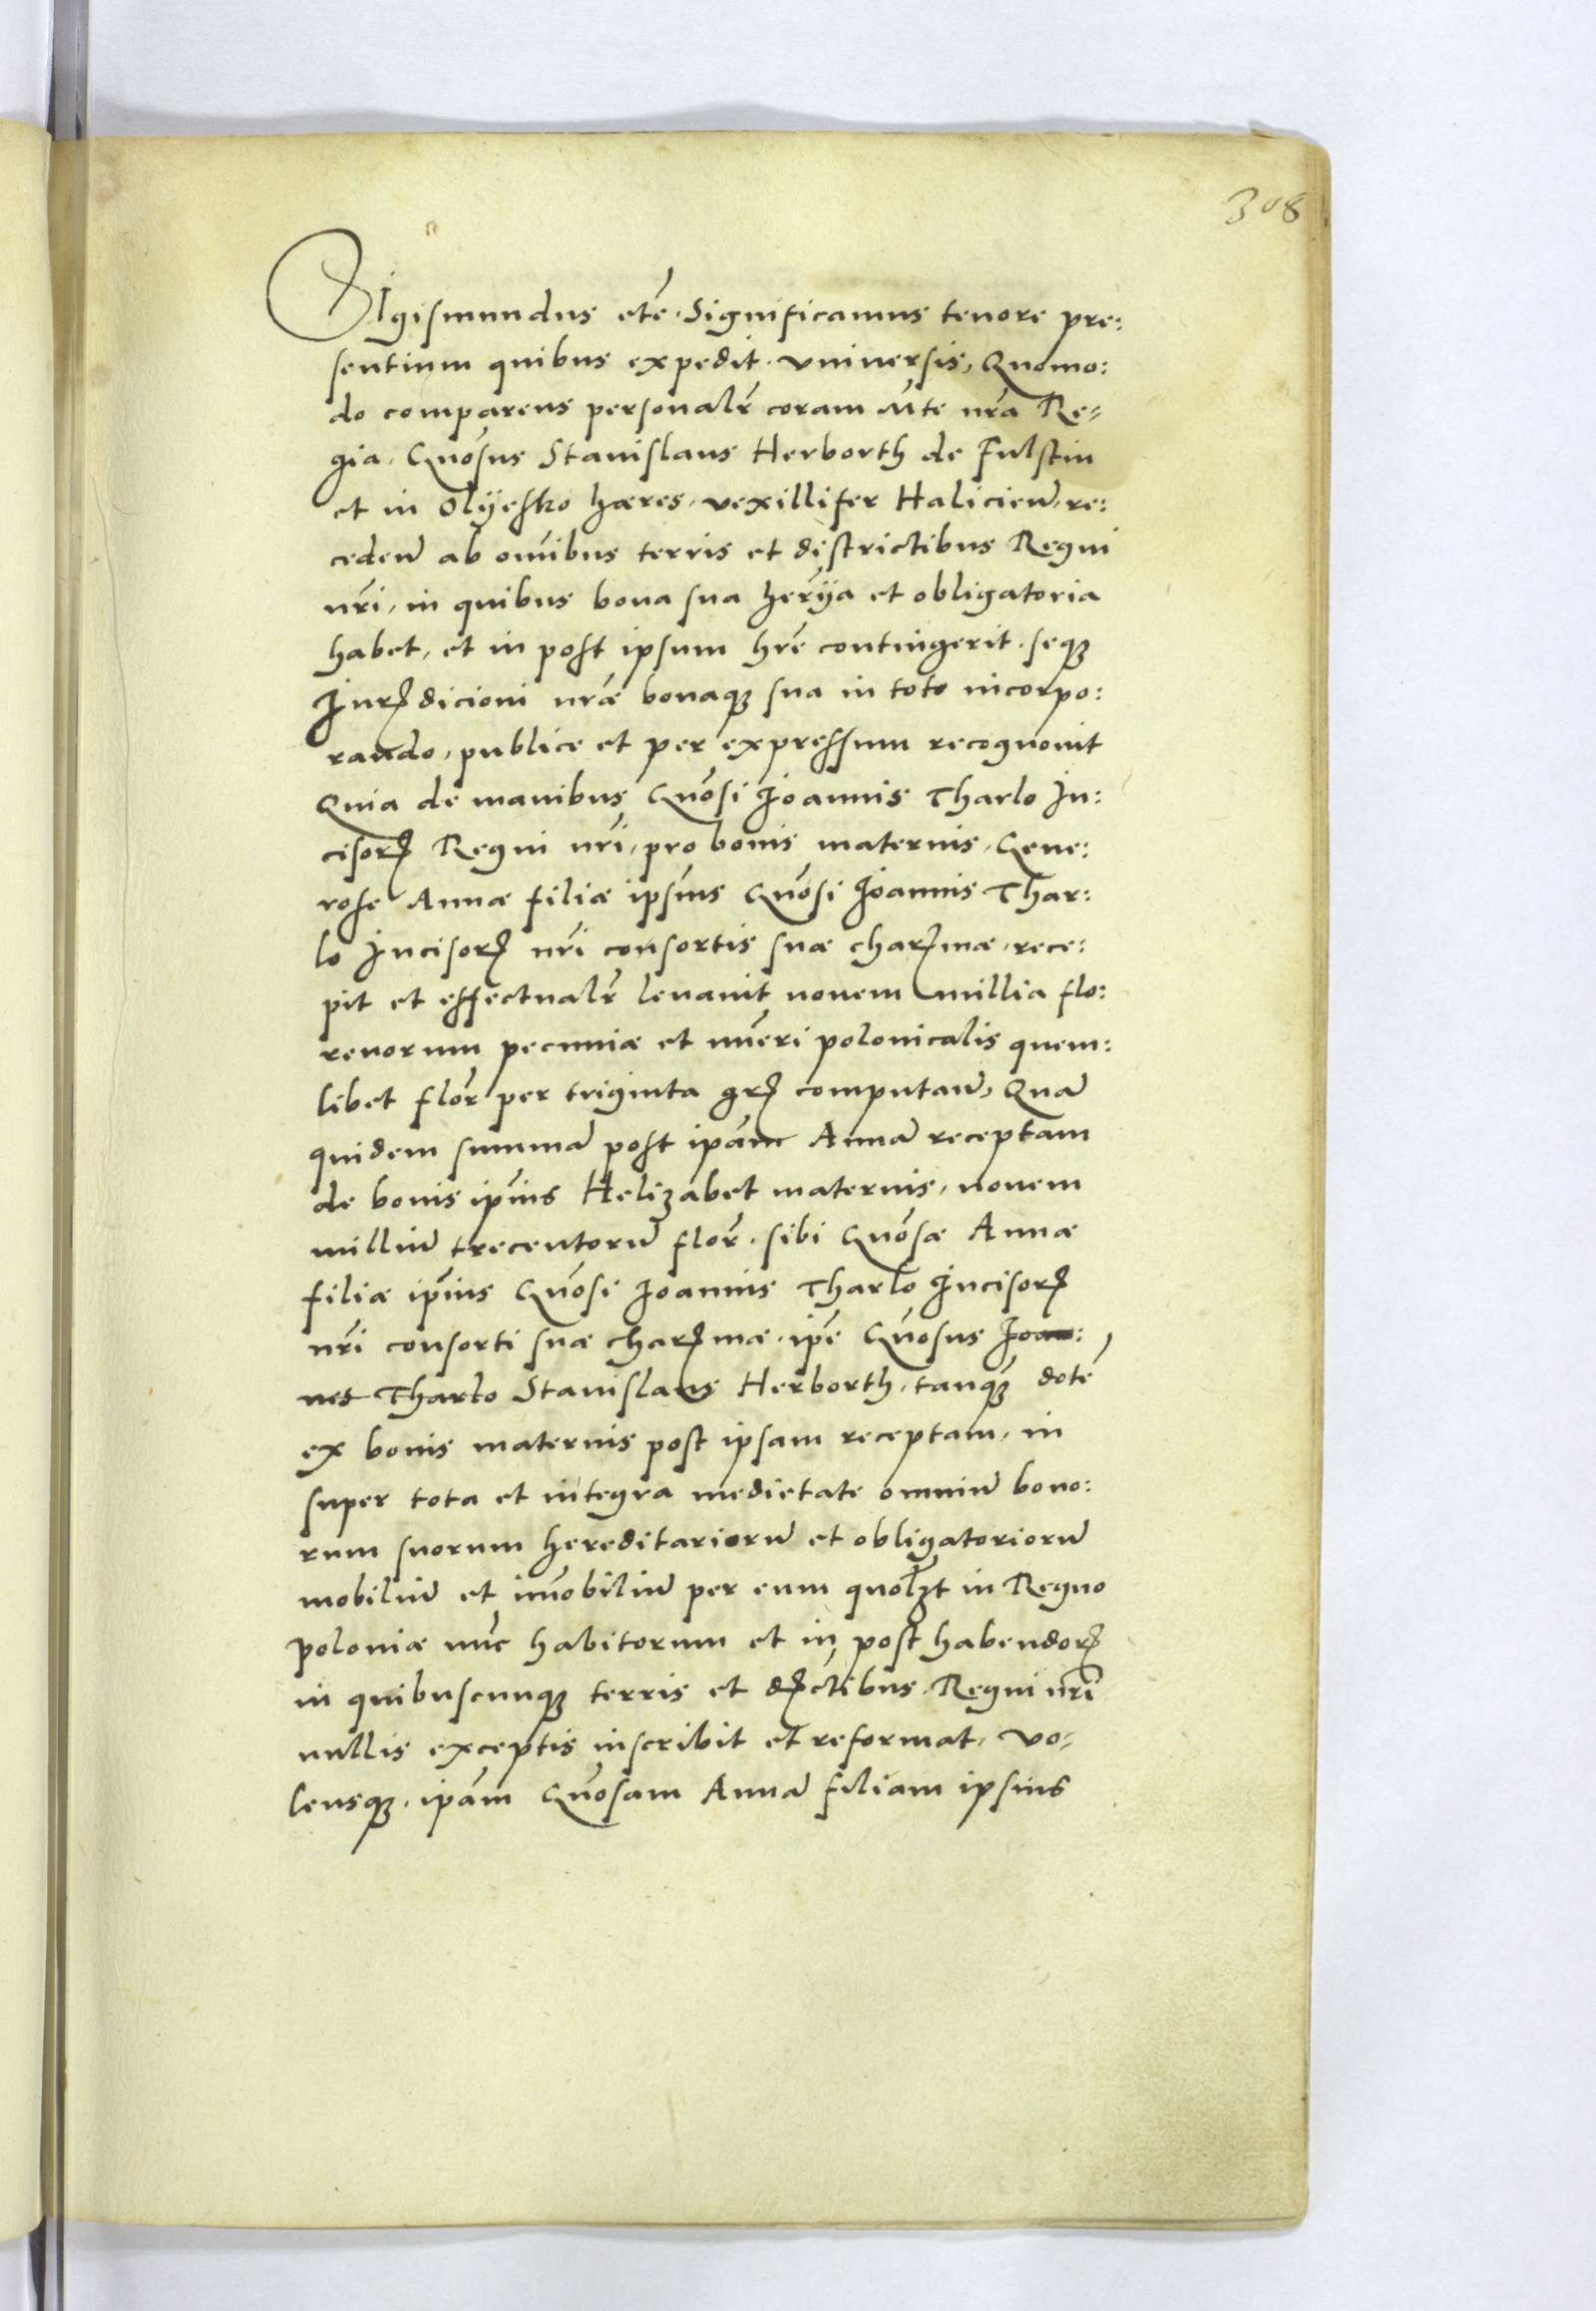 308
SIgismundus etc̃. Significamus tenore pre:
sentium quibus expedit. vniuersis, Quomo:
do comparens personalr̃ coram Mte nr̃a Re=
gia. Gn̄osus Stanislaus Herborth de Fulstin
et in Olÿesko hæres. vexillifer Halicien̄. re:
ceden̄ ab om̄ibus terris et districtibus Regni
nr̃i, in quibus bona sua her̃ÿa et obligatoria
habet, et in post ipsum hr̃e contingerit. seqꝫ
Jurꝭdicioni nr̃æ bonaqꝫ sua in toto incorpo:
rando, publice et per expressum recognouit
Quia de manibus Gn̄osi Joannis Tharlo In:
cisorꝭ Regni nr̃i, pro bonis maternis, Gene:
rose Annæ filiæ ipsius Gn̄osi Joannis Thar:
lo Incisorꝭ nr̃i consortis suæ charꝭmæ, rece:
pit et effectualr̃ leuauit nouem millia flo:
renorum pecuniæ et nūeri polonicalis quem:
libet flor̃ per triginta grꝭ computan̄, Quā
quidem summā post ipām Annā receptam
de bonis ip̄ius Helizabet maternis, nouem
milliū trecentorū flor̃. sibi Gn̄osæ Annæ
filiæ ip̄ius Gn̄osi Joannis Tharlo Incisorꝭ
nr̃i consorti suæ charꝭmæ. ip̄e Gn̄osus Joan:
nes Tharlo Stanislaus Herborth, tanqꝫ̄ dotē
ex bonis maternis post ipsam receptam, in
super tota et integra medietate omniū bono:
rum suorum hereditariorū et obligatoriorū
mobiliū et im̄obiliū per eum quol̃ꝫt in Regno
Poloniæ nūc habitorum et in post habendorꝭ
in quibuscunqꝫ terris et dꝭctibus. Regni nr̃i
nullis exceptis inscribit et reformat, vo=
lensqꝫ. ipām Gn̄osam Annā filiam ipsius